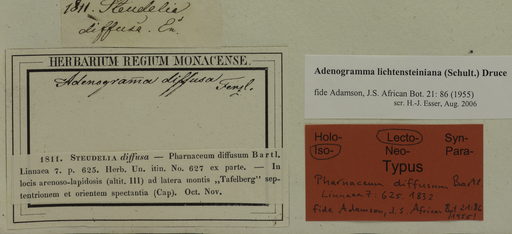 1811. Steudelia
diffusa. En.
HERBARIUM REGIUM MONACENSE.
Adenogramma diffusa
Fenzl.
1811. STEUDELIA diffusa — Pharnaceum diffusum Bartl.
Linnaea 7. p. 625. Herb. Un. itin. No. 627 ex parte. — In
locis arenoso-lapidosis (altit. III) ad latera montis „Tafelberg" sep-
tentrionem et orientem spectantia (Cap). Oct. Nov.
Adenogramma lichtensteiniana (Schult.) Druce
fide Adamson, J.S. African Bot. 21: 86 (1955)
scr. H.-J. Esser, Aug. 2006
Holo- Lecto- Syn-
Iso- Neo- Para-
Typus
Pharnaceum diffusum Bartl.
Linnaea 7: 625 1832
fide Adamson, J.S. African Bot 21: 86
(1955)